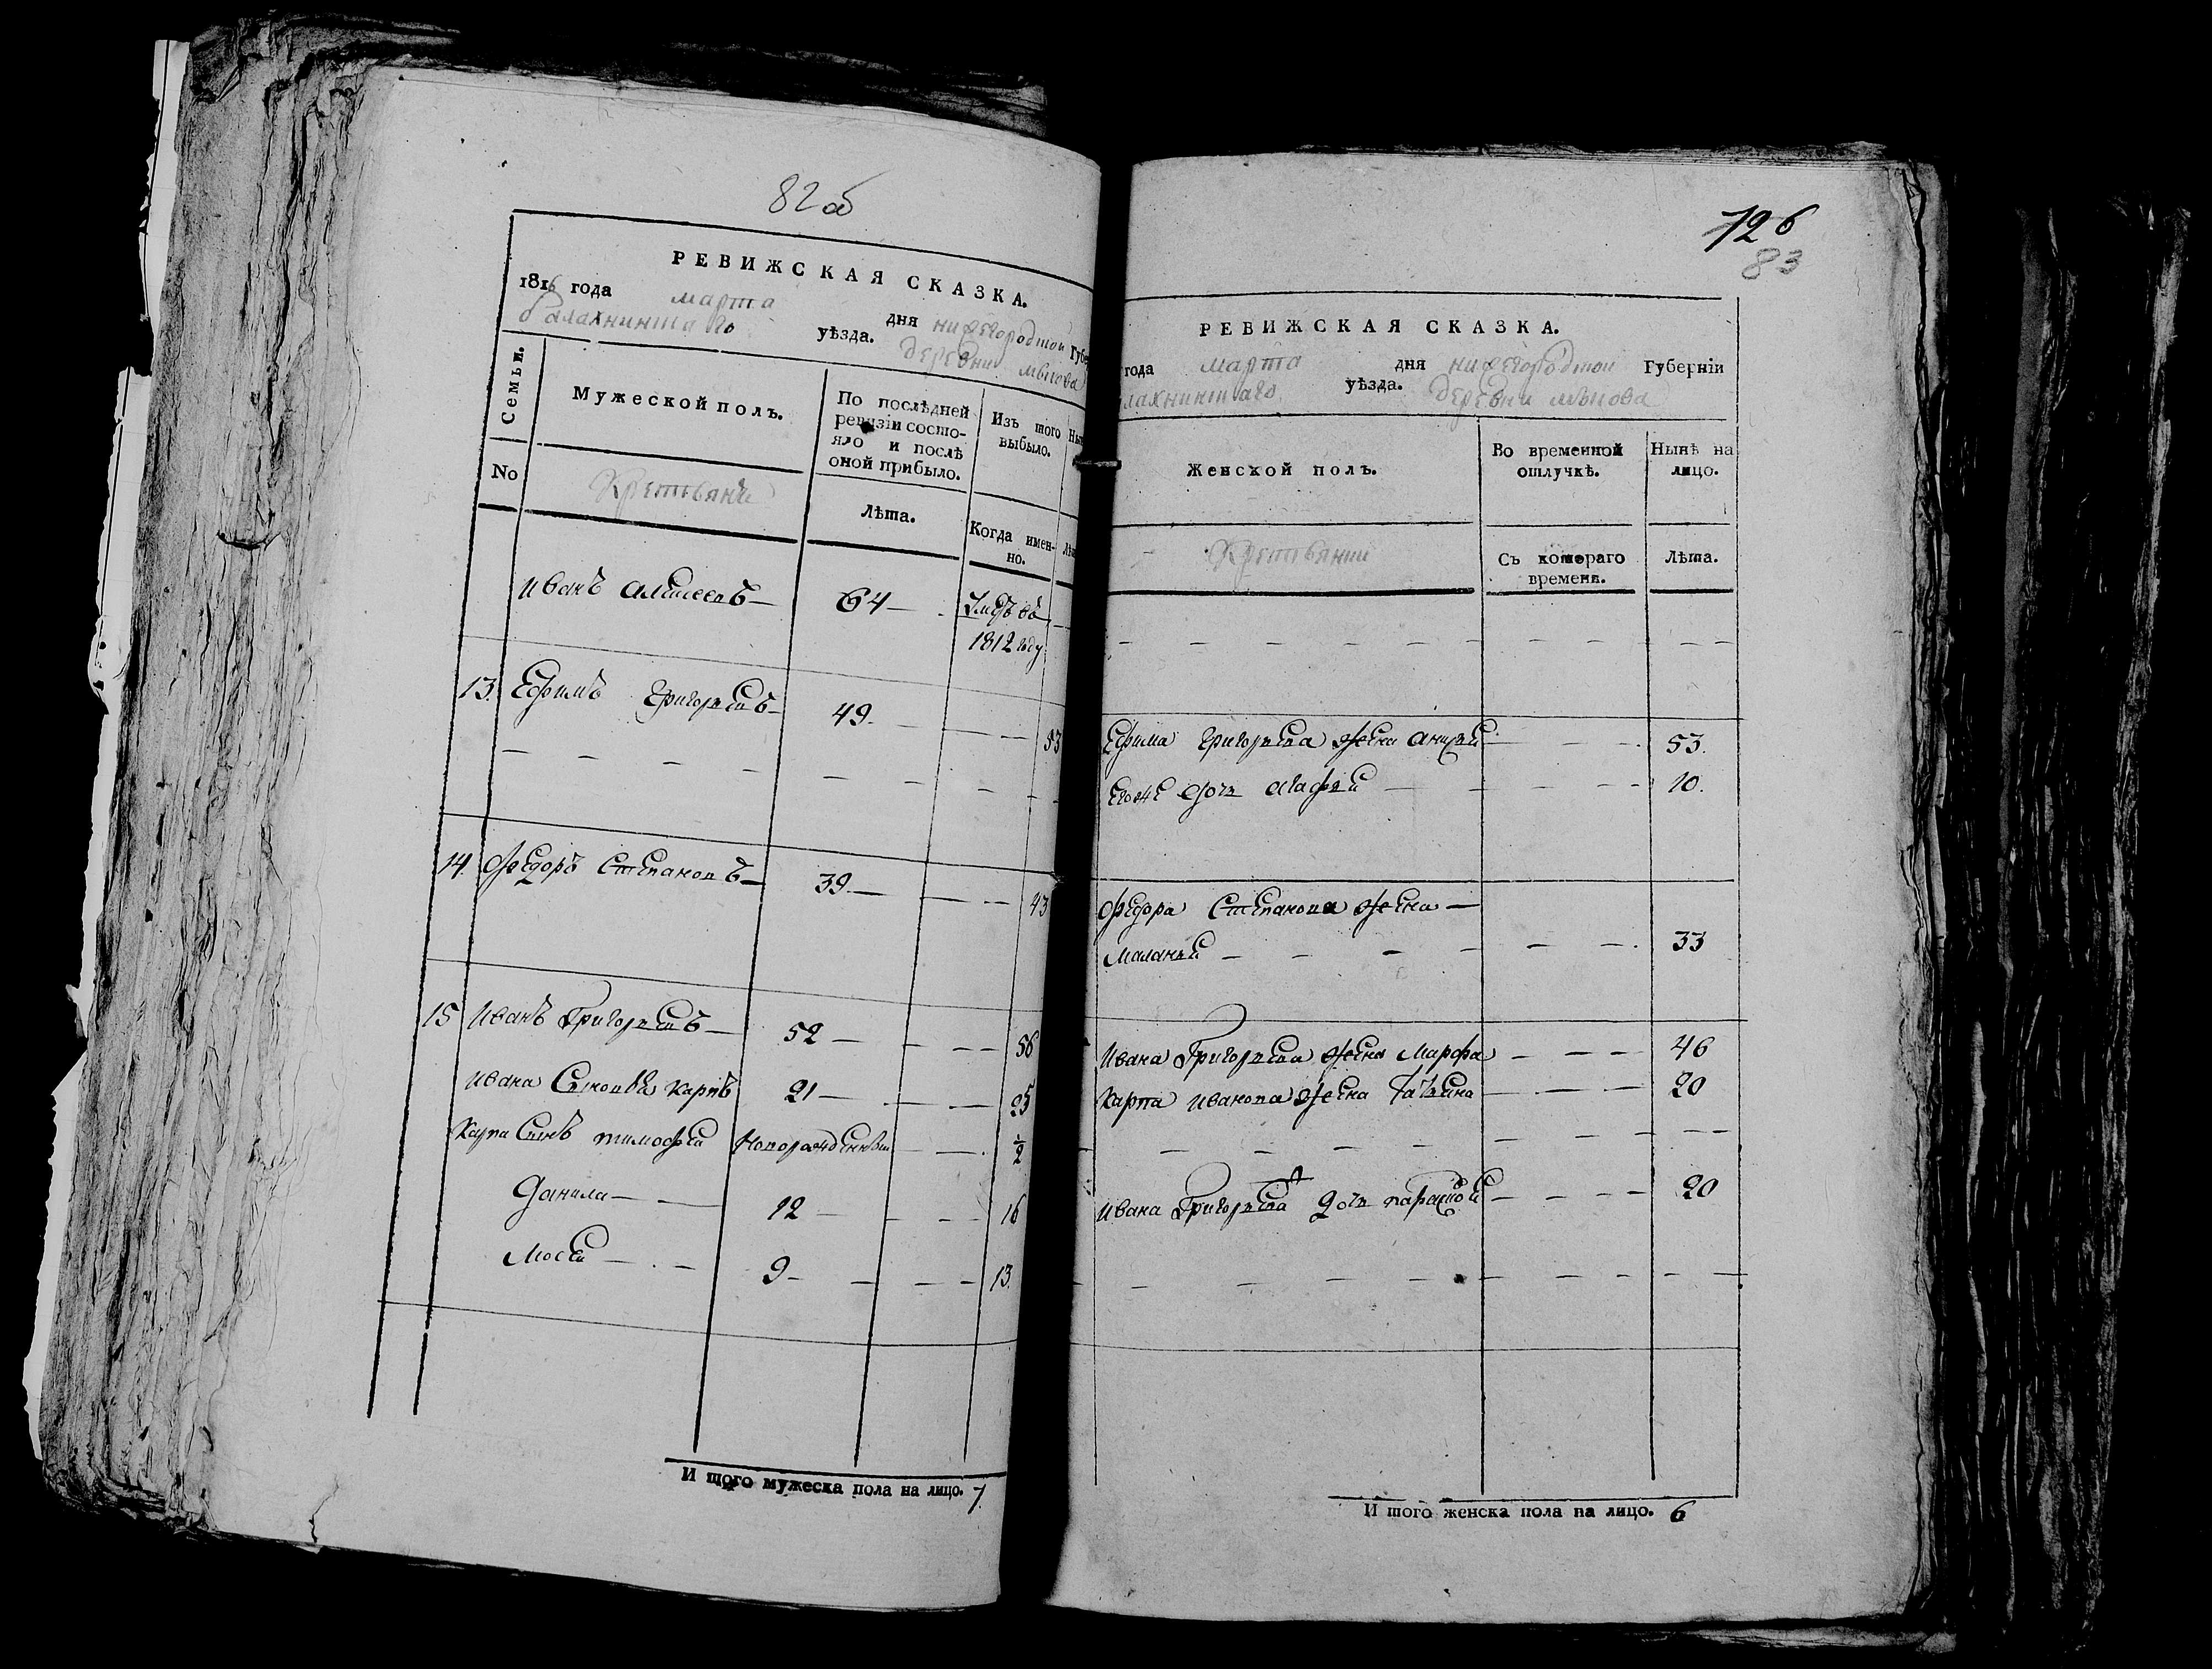 82об
РЕВИЖСКАЯ СКАЗКА.
1816 года марта дня нижегородской Губе
балахнинскаго уѣзда. деревни
Семьи.
Мужеской полъ.
По послѣдней ревизіи состояло и послѣ оной прибыло.
Изъ того выбыло.
Ны
No
Крестьяне
Лѣта.
Когда именно.
Лѣт
Иванъ Алексеевъ — 64 — Умре въ 1812 году
13. Ефимъ Григорьевъ — 49. — 53
14. Федоръ Степановъ — 39. — 43
15 Иванъ Григорьевъ — 52 — 56
Ивана Сыновья Карпъ 21 — 25
Карпа Сынъ тимофей Новорожденный ½
Данила — 12 — 16
Мосей — 9 — 13.
И того мужеска пола на лицо. 7.
126
83
РЕВИЖСКАЯ СКАЗКА.
года марта дня нижегородской Губерніи
лахнинскаго уѣзда. деревни
Женской полъ.
Во временной отлучкѣ.
Нынѣ на лицо.
Съ котораго времени.
Лѣта.
Ефима Григорьева жена 53.
Егоже дочь Агафья 10.
Федора Степанова жена —
Маланья — 33
Ивана Григорьева жена Марфа — 46
Карпа Иванова жена Татьяна — 20
Ивана Григорьева дочь — 20
И того женска пола на лицо. 6